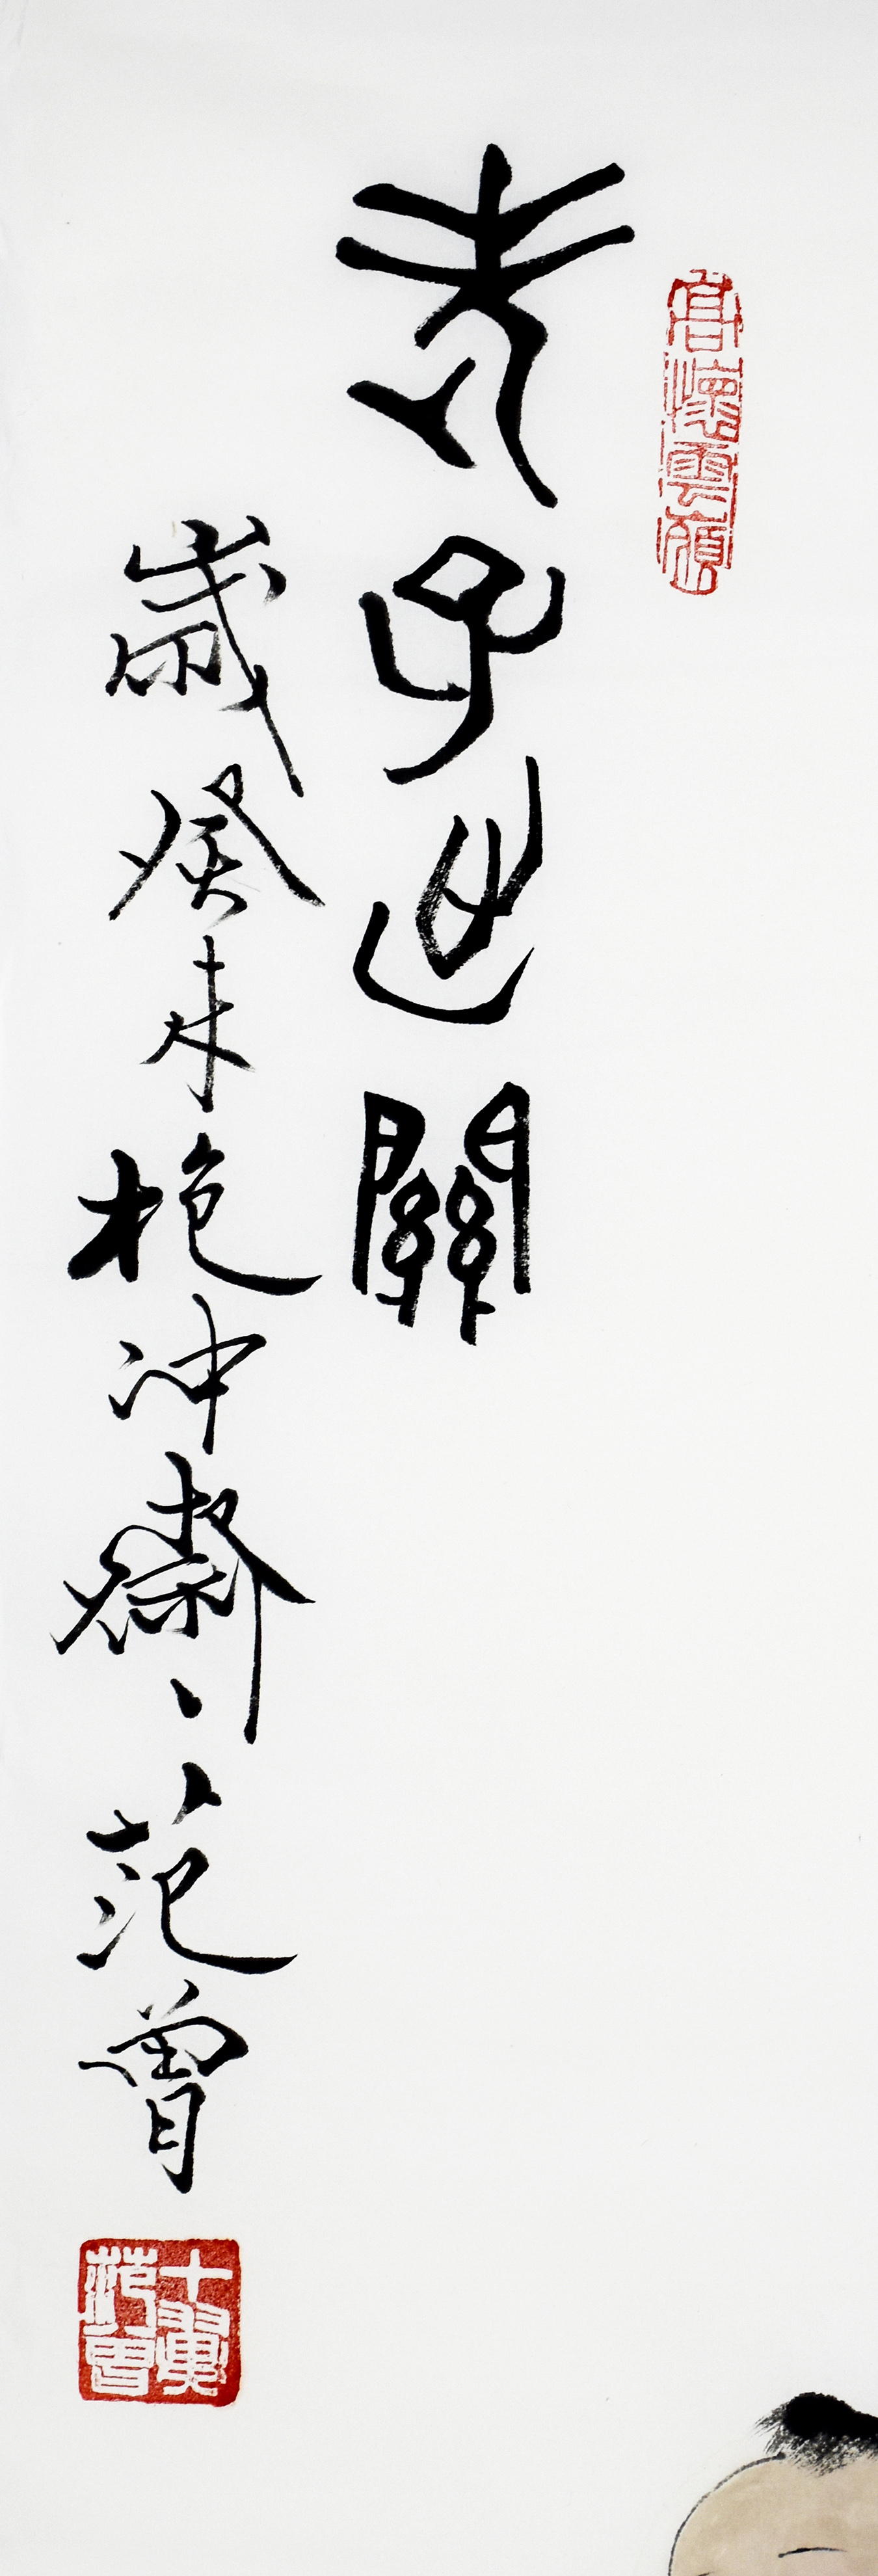 高懷雲嶺
老子出關
歲癸未抱冲齋、范曾
十翼
范曾